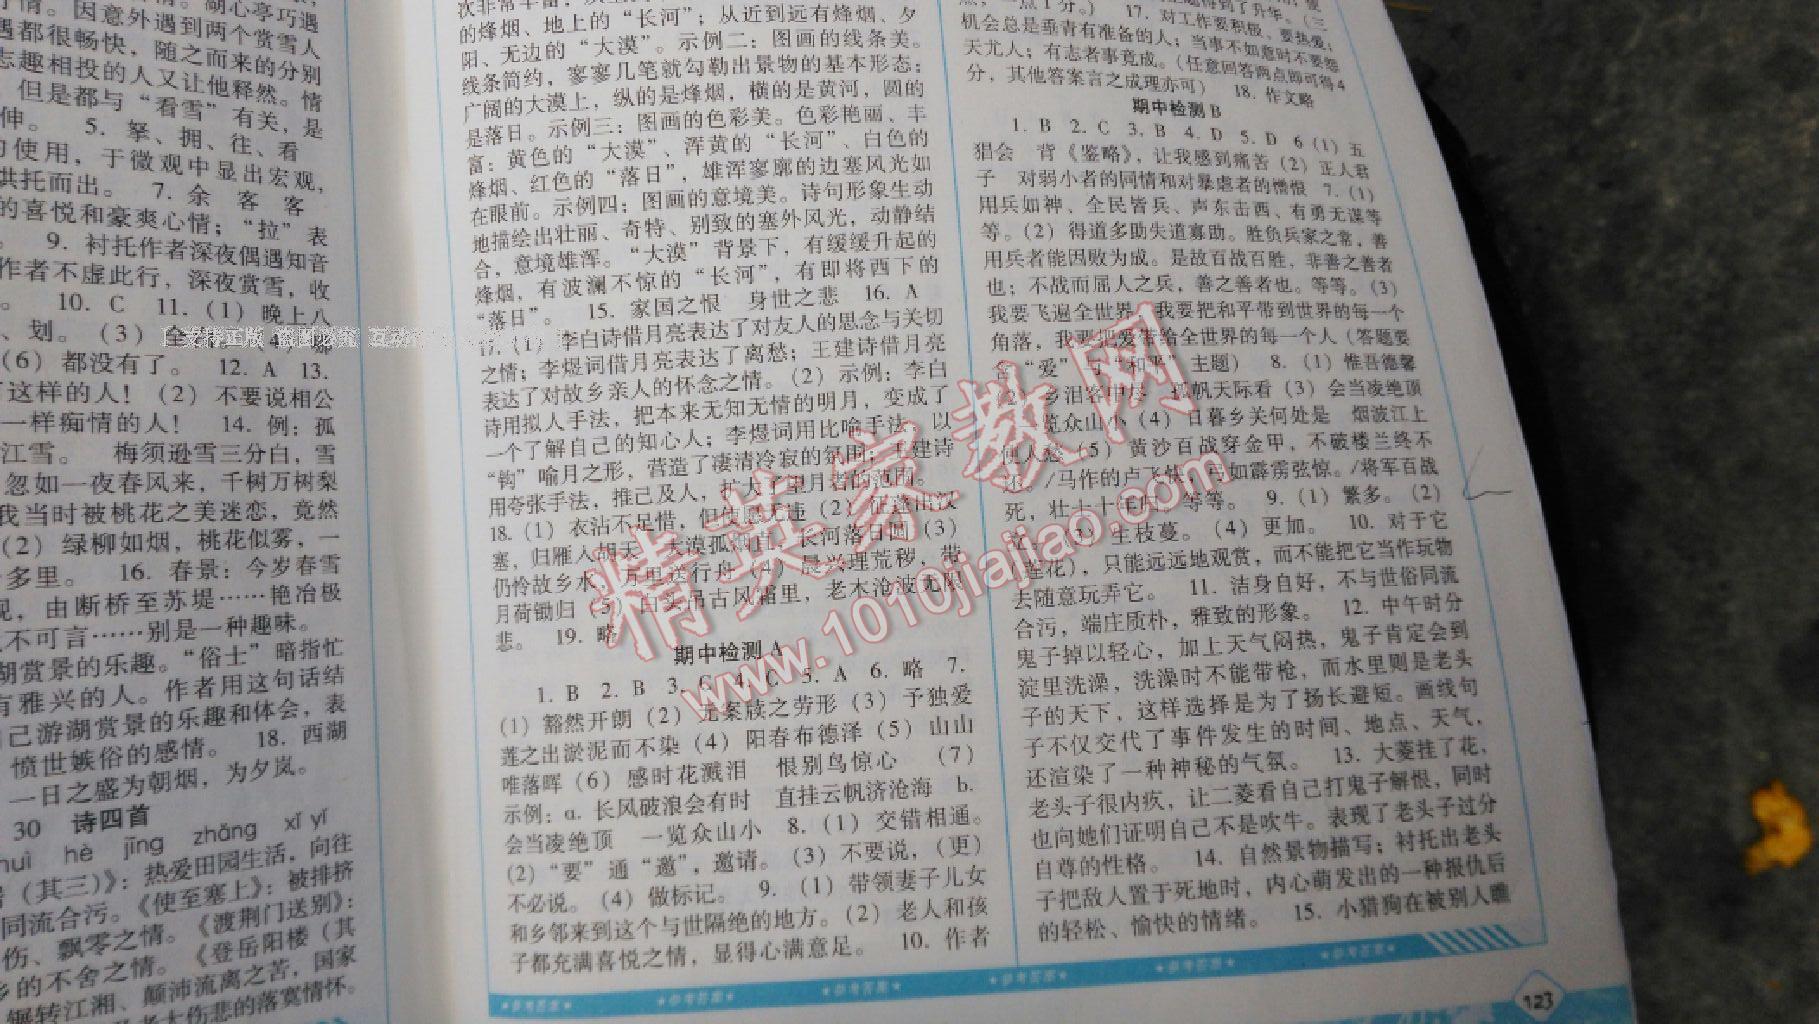 时情。因意外遇到两个赏雪人
遇都很畅快，随之而来的分别
志趣相投的人又让他释然。情
但是都与“看雪”有关，是
伸。 5. 拏、拥、往、看
的使用，于微观中显出宏观，
烘托而出。 7. 余 客 客
的喜悦和豪爽心情；“拉”表
9. 衬托作者深夜偶遇知音
作者不虚此行，深夜赏雪，收
10. C 11.（1）晚上八
、划。（3）全
（6）都没有了。 12. A 13.
这样的人！（2）不要说相公
一样痴情的人！ 14. 例：孤
江雪。 梅须逊雪三分白，雪
忽如一夜春风来，千树万树梨
我当时被桃花之美迷恋，竟然
（2）绿柳如烟，桃花似雾，一
多里。 16. 春景：今岁春雪
观，由断桥至苏堤……艳冶极
不可言……别是一种趣味。
湖赏景的乐趣。“俗士”暗指忙
有雅兴的人。作者用这句话结
己游湖赏景的乐趣和体会，表
愤世嫉俗的感情。 18. 西湖
一日之盛为朝烟，为夕岚。
30 诗四首
huì hè jīng zhāng xī yī
（其三）》：热爱田园生活，向往
同流合污。《使至塞上》：被排挤
伤、飘零之情。《渡荆门送别》：
乡的不舍之情。《登岳阳楼（其
辗转江湘、颠沛流离之苦，国家
老大伤悲的落寞情怀。
的烽烟、地上的“长河”；从近到远有烽烟、夕
阳、无边的“大漠”。示例二：图画的线条美。
线条简约，寥寥几笔就勾勒出景物的基本形态；
广阔的大漠上，纵的是烽烟，横的是黄河，圆的
是落日。示例三：图画的色彩美。色彩艳丽、丰
富：黄色的“大漠”、浑黄的“长河”、白色的
烽烟、红色的“落日”，雄浑寥廓的边塞风光如
在眼前。示例四：图画的意境美。诗句形象生动
地描绘出壮丽、奇特、别致的塞外风光，动静结
合，意境雄浑。“大漠”背景下，有缓缓升起的
烽烟，有波澜不惊的“长河”，有即将西下的
“落日”。 15. 家国之恨 身世之悲 16. A
（1）李白诗借月亮表达了对友人的思念与关切
之情；李煜词借月亮表达了离愁；王建诗借月亮
表达了对故乡亲人的怀念之情。（2）示例：李白
诗用拟人手法，把本来无知无情的明月，变成了
一个了解自己的知心人；李煜词用比喻手法，以
“钩”喻月之形，营造了凄清冷寂的氛围；王建诗
用夸张手法，推己及人，扩大了望月者的范围。
18.（1）衣沾不足惜，但使愿无违（2）征蓬出汉
塞，归雁入胡天 大漠孤烟直 长河落日圆（3）
仍怜故乡水，万里送行舟（4）晨兴理荒秽，带
月荷锄归（5）白头吊古风霜里，老木沧波无限
悲。 19. 略
期中检测 A
1. B 2. B 3. C 4. C 5. A 6. 略 7.
（1）豁然开朗（2）无案牍之劳形（3）予独爱
莲之出淤泥而不染（4）阳春布德泽（5）山山
唯落晖（6）感时花溅泪 恨别鸟惊心 （7）
示例：a. 长风破浪会有时 直挂云帆济沧海 b.
会当凌绝顶 一览众山小 8.（1）交错相通。
（2）“要”通“邀”，邀请。（3）不要说，（更）
不必说。（4）做标记。 9.（1）带领妻子儿女
和乡邻来到这个与世隔绝的地方。（2）老人和孩
子都充满喜悦之情，显得心满意足。 10. 作者
17. 对工作要积极、要热爱；
机会总是垂青有准备的人；当事不如意时不要怨
天尤人；有志者事竟成。（任意回答两点即可得4
分，其他答案言之成理亦可） 18. 作文略
期中检测 B
1. B 2. C 3. B 4. D 5. D 6（1）五
猖会 背《鉴略》，让我感到痛苦（2）正人君
子 对弱小者的同情和对暴虐者的憎恨 7.（1）
用兵如神、全民皆兵、声东击西、有勇无谋等
等。（2）得道多助失道寡助。胜负兵家之常，善
用兵者能因败为成。是故百战百胜，非善之善者
也；不战而屈人之兵，善之善者也。等等。（3）
我要飞遍全世界，我要把和平带到世界的每一个
角落，我要把爱带给全世界的每一个人（答题要
含“爱”与“和平”主题） 8.（1）惟吾德馨
（2）乡泪客中尽 孤帆天际看（3）会当凌绝顶
一览众山小（4）日暮乡关何处是 烟波江上
使人愁（5）黄沙百战穿金甲，不破楼兰终不
还。/马作的卢飞快，弓如霹雳弦惊。/将军百战
死，壮士十年归。等等。 9.（1）繁多。（2）
（3）生枝蔓。（4）更加。 10. 对于它
（莲花），只能远远地观赏，而不能把它当作玩物
去随意玩弄它。 11. 洁身自好，不与世俗同流
合污，端庄质朴，雅致的形象。 12. 中午时分
鬼子掉以轻心，加上天气闷热，鬼子肯定会到
淀里洗澡，洗澡时不能带枪，而水里则是老头
子的天下，这样选择是为了扬长避短。画线句
子不仅交代了事件发生的时间、地点、天气，
还渲染了一种神秘的气氛。 13. 大菱挂了花，
老头子很内疚，让二菱看自己打鬼子解恨，同时
也向她们证明自己不是吹牛。表现了老头子过分
自尊的性格。 14. 自然景物描写；衬托出老头
子把敌人置于死地时，内心萌发出的一种报仇后
的轻松、愉快的情绪。 15. 小猎狗在被别人瞧
★参考答案★ ★参考答案★ ★参考答案★ ★参考答案★ ★参考答案★ ★参考答案★
123
精英家教网
www.1010jiajiao.com